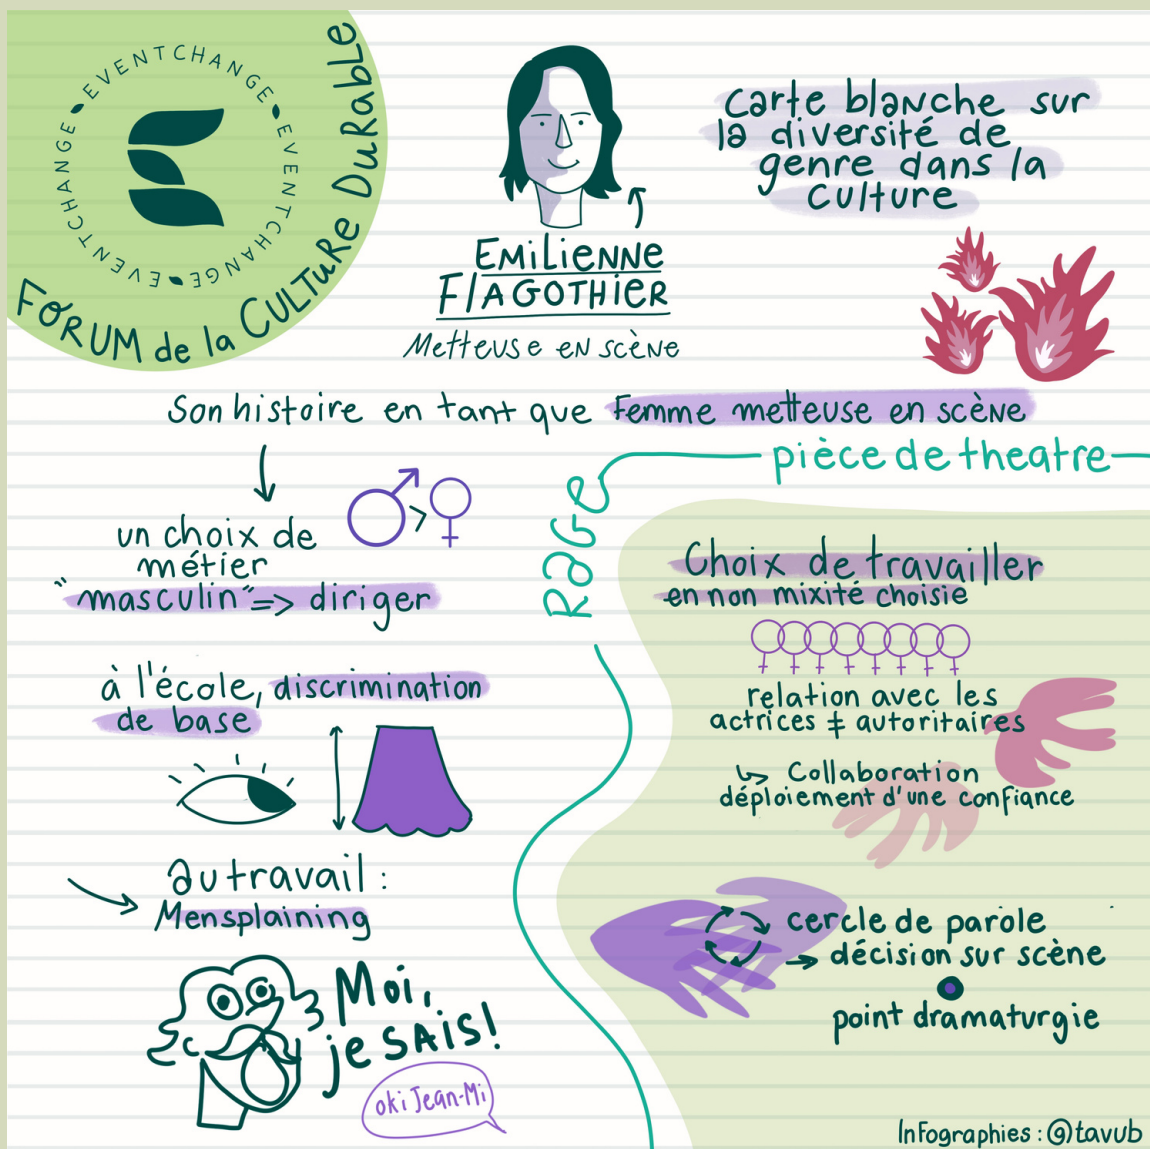 EVENTCHANGE • EVENTCHANGE • EVENTCHANGE • EVENTCHANGE
FORUM de la CULTuRe DuRable
EMiLieNNe
FlAGOTHieR
Metteuse eN scèNe
Carte blaNche sur
la diversité de
genre dans la
Culture
Son histoire en tant que Femme metteuse en scèNe
pièce de theatre
RaGe
un choix de
métier
"masculin" => diriger
>
à l'école, discrimination
de base
au travail :
Mensplaining
Moi,
je SAiS!
oki Jean-Mi
Choix de travailler
en non mixité choisie
relation avec les
actrices ≠ autoritaires
↳ Collaboration
déploiement d'une confiance
cercle de parole
→ décision sur scène
point dramaturgie
InFographies : @tavub